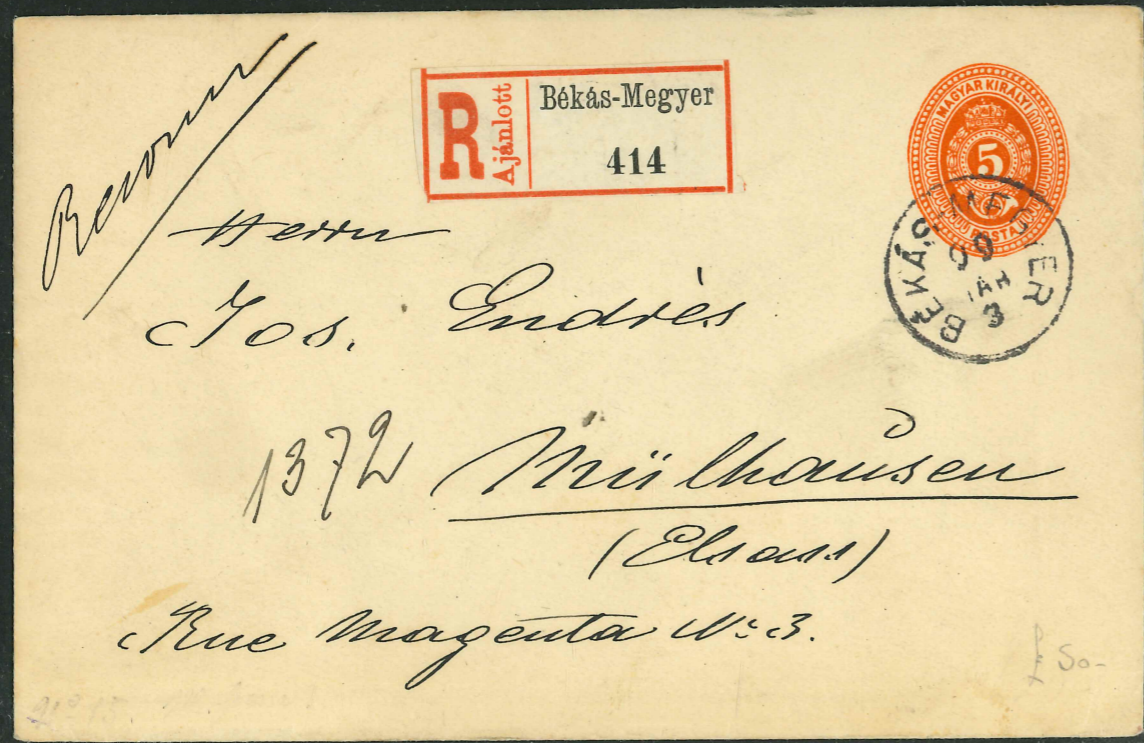 R Ajánlott
Békás-Megyer
414
MAGYAR KIRÁLYI
5
POSTA
BÉKÁS-MEGYER
99
JAN
3
Herrn
Jos. Endrès
1372
Mülhausen
(Elsass)
Rue Magenta No. 3.
£ 50-